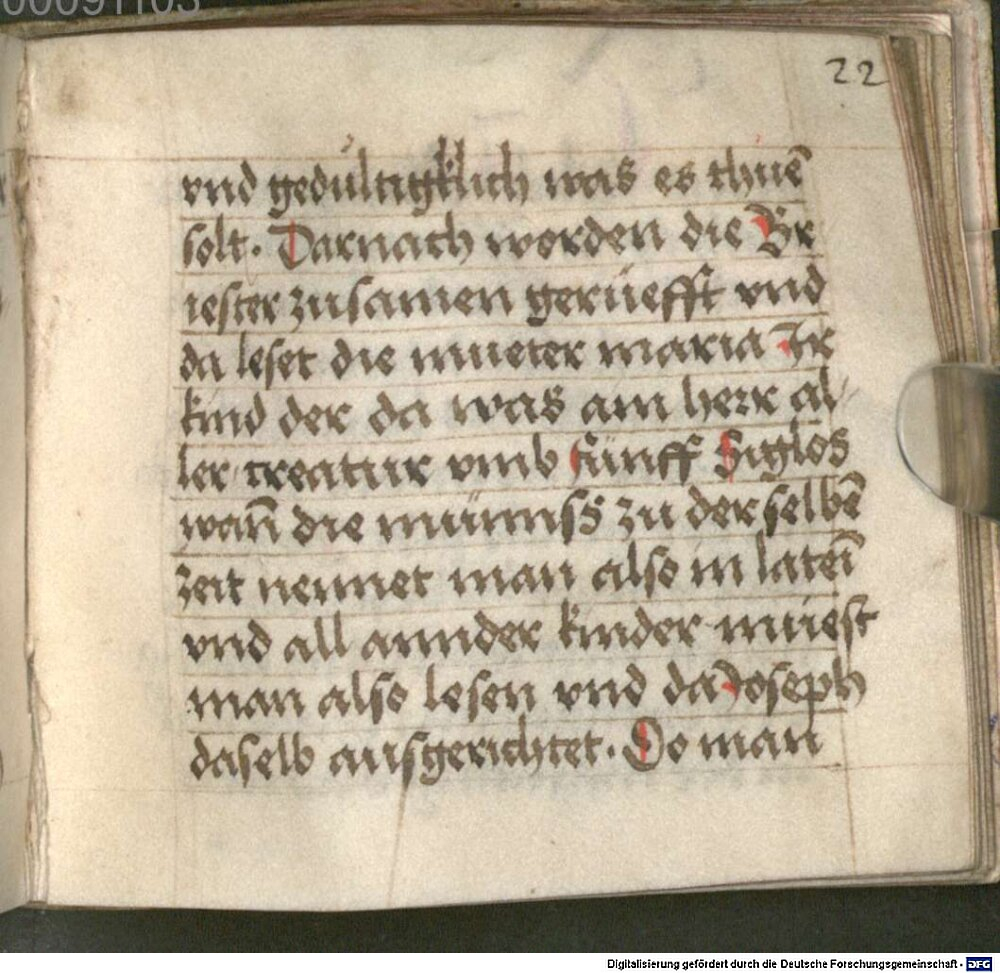 00091103
22
vnd gedúltigklich was es thuē
solt. Darnach worden die Br
iester zusamen gerüefft vnd
da leset die mueter maria Ir
kind der da was ain herr al
ler creatur vmb fünff Siglos
wan̄ die münnss zu der selbē
zeit nennet man also in lateī
vnd all annder kinder müest
man also lesen vnd da Joseph
daselb ausgerichtet. Do man
Digitalisierung gefördert durch die Deutsche Forschungsgemeinschaft - DFG